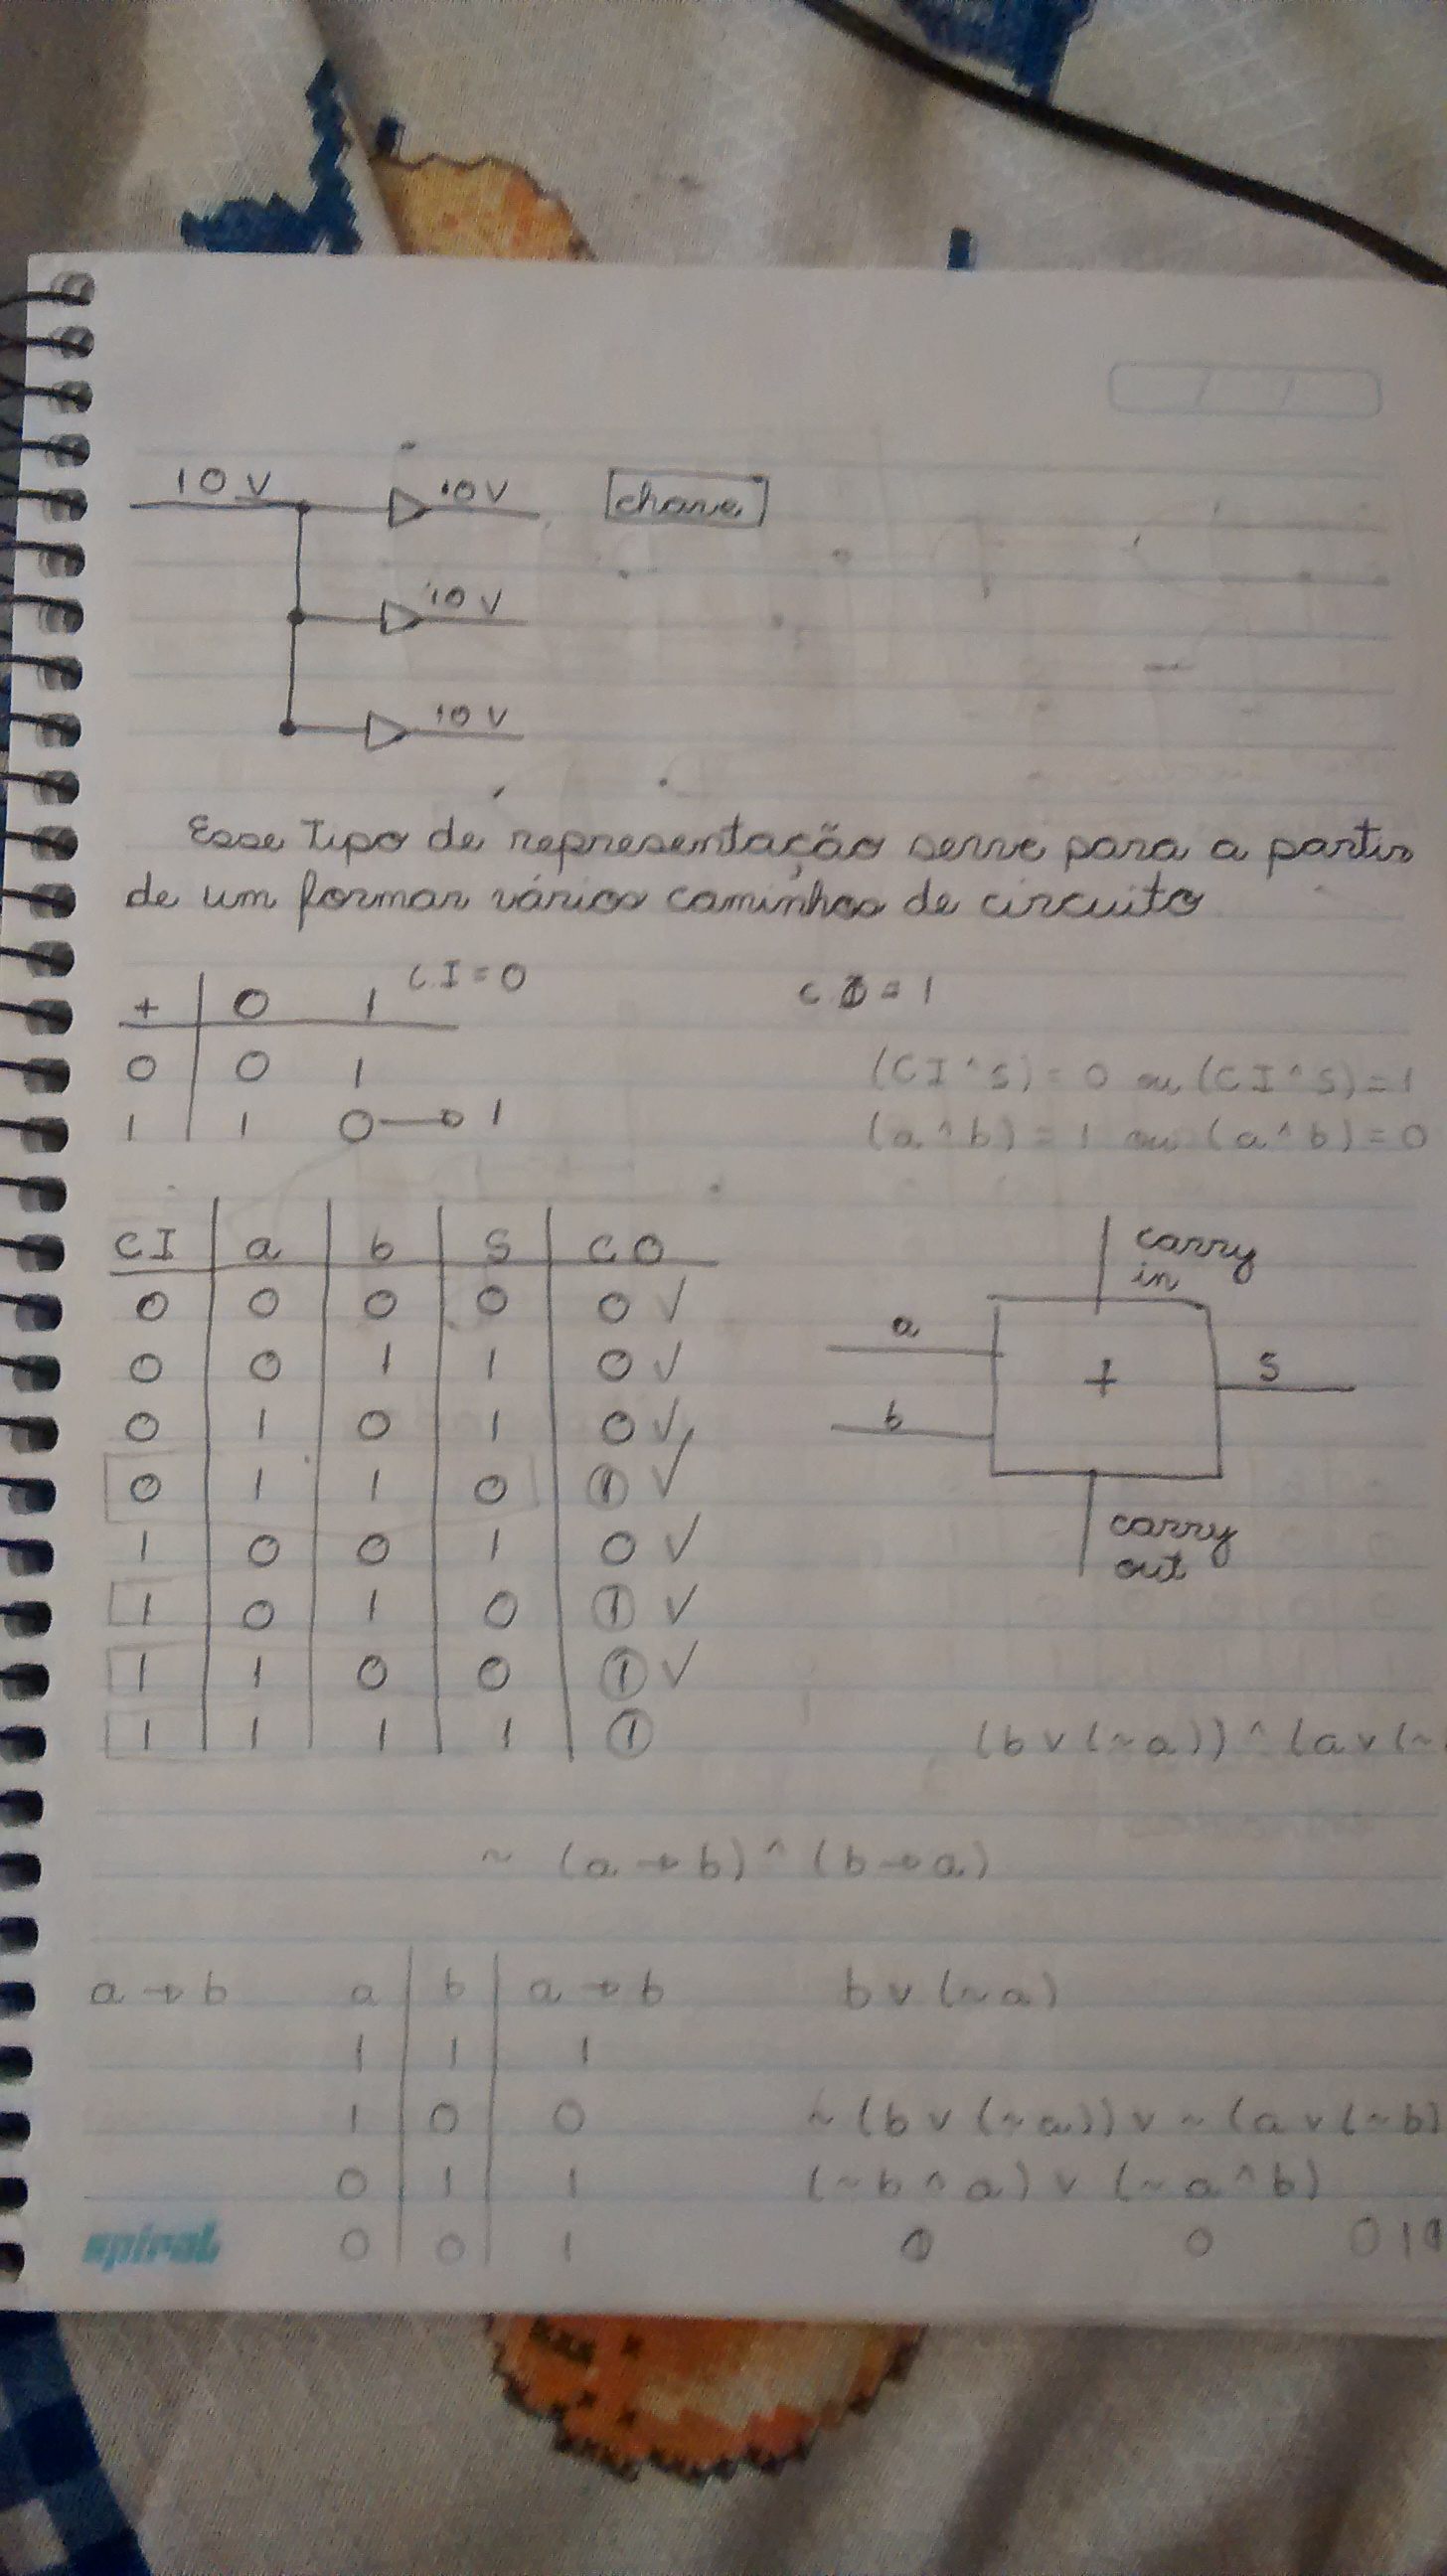 10V 10V chave
10V
10V
Esse Tipo de representação serve para a partir
de um formar vários caminhos de circuito
C.I=0 C.I=1
+ 0 1
0 0 1
1 1 0 → 1
(CI^S)=0 ou (CI^S)=1
(a^b)=1 ou (a^b)=0
CI a b S CO
0 0 0 0 0 ✓
0 0 1 1 0 ✓
0 1 0 1 0 ✓
0 1 1 0 1 ✓
1 0 0 1 0 ✓
1 0 1 0 1 ✓
1 1 0 0 1 ✓
1 1 1 1 1
carry
in
a
+ S
b
carry
out
(b v (~a)) ^ (a v (~
~ (a → b) ^ (b → a)
a → b a b a → b b v (~a)
1 1 1
1 0 0 ~(b v (~a)) v ~(a v (~b)
0 1 1 (~b ^ a) v (~a ^ b)
0 0 1 0 0
spiral